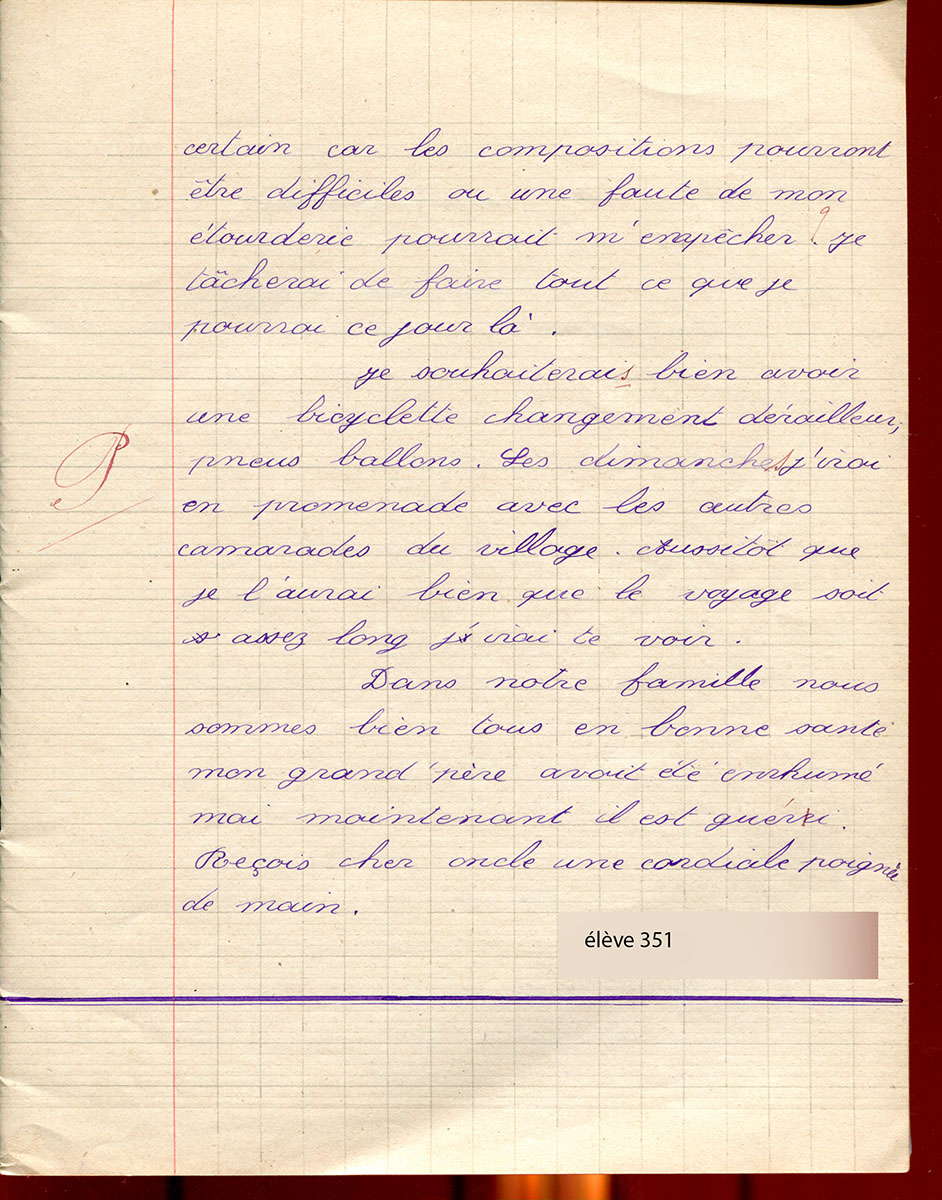 certain car les compositions pourront
être difficiles ou une faute de mon
étourderie pourrait m'empêcher ? je
tâcherai de faire tout ce que je
pourrai ce jour là.
je souhaiterais bien avoir
une bicyclette changement dérailleur,
pneus ballons. Les dimanches j'irai
en promenade avec les autres
camarades du village. Aussitôt que
je l'aurai bien que le voyage soit
assez long j'irai te voir.
Dans notre famille nous
sommes bien tous en bonne santé
mon grand'père avait été enrhumé
mai maintenant il est guéri.
Reçois cher oncle une cordiale poignée
de main.
élève 351